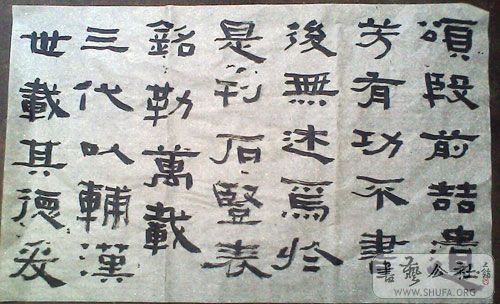 頌殷前喆遺
芳有功不書
後無述焉於
是刊石豎表
銘勒萬載
三代以輔漢
世載其德爰
書藝公社
WWW.SHUFA.ORG